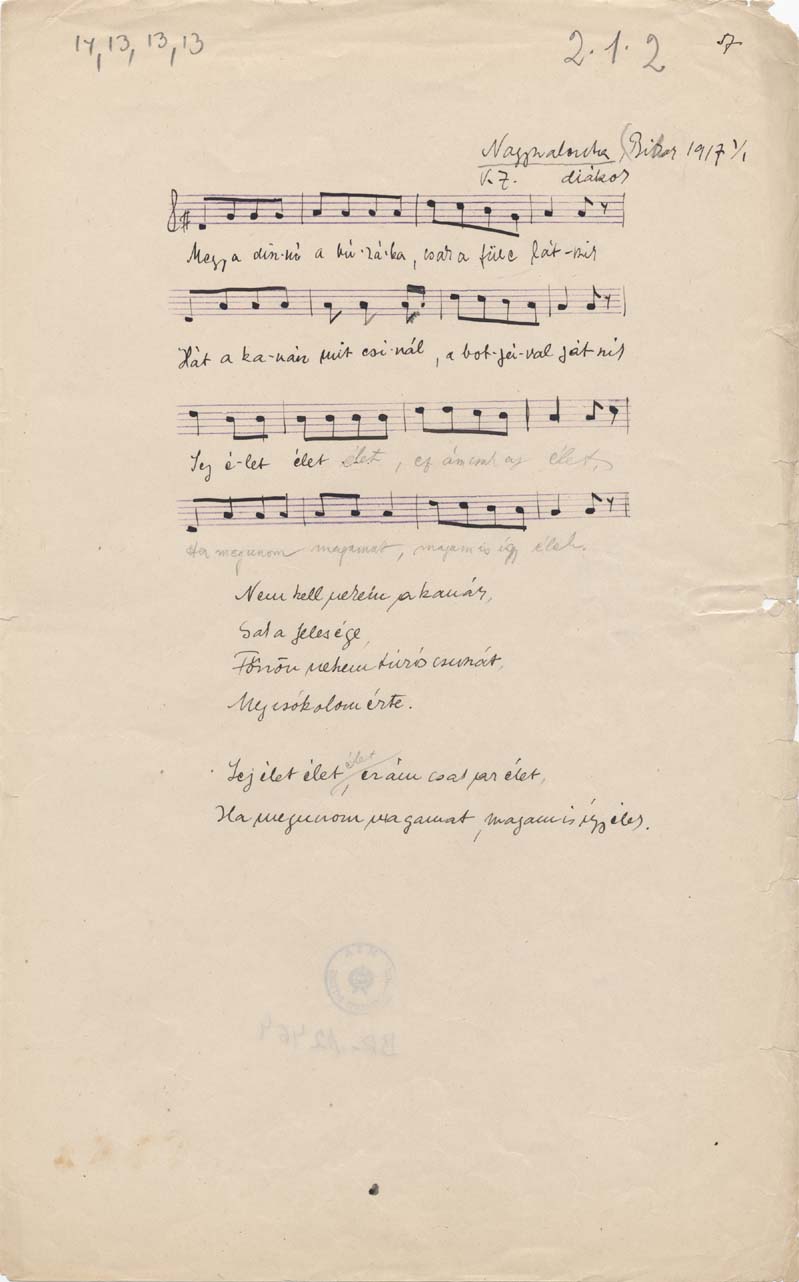 14, 13, 13, 13
2. 1. 2
Nagyszalonta (Bihar 1917 I/1
K. Z. diákok
Megy a disznó a bú-zá-ba, csak a füle lát-szik
Hát a ka-nász mit csi-nál, a bot-já-val ját-szik
Jej é-let élet élet, ez ám csak az élet,
Ha megunom magamat, magam is így élek.
Nem kell nekem a kanász,
Se a felesége,
túrós csuszát,
Megcsókolom érte.
Jej élet élet, élet ez ám csak az élet,
Ha megunom magamat, magam is így élek.